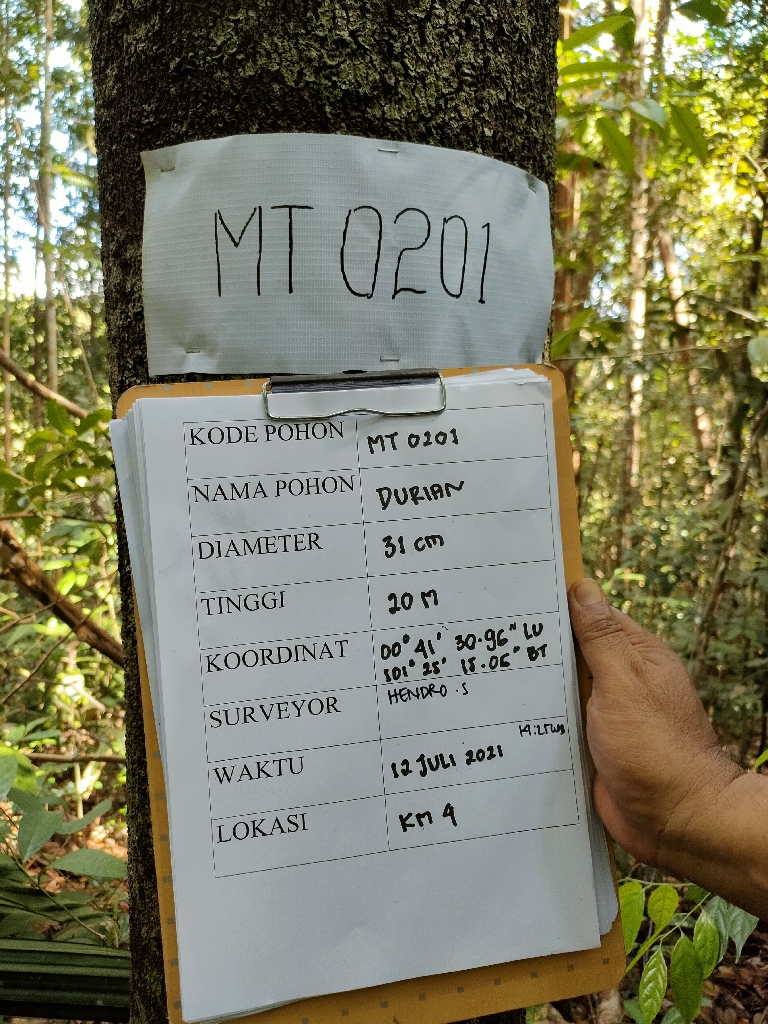 MT 0201
KODE POHON MT 0201
NAMA POHON DURIAN
DIAMETER 31 cm
TINGGI 20 M
KOORDINAT 00° 41' 30.96" LU
101° 25' 15.06" BT
SURVEYOR HENDRO.S
WAKTU 12 JULI 2021
LOKASI KM 4